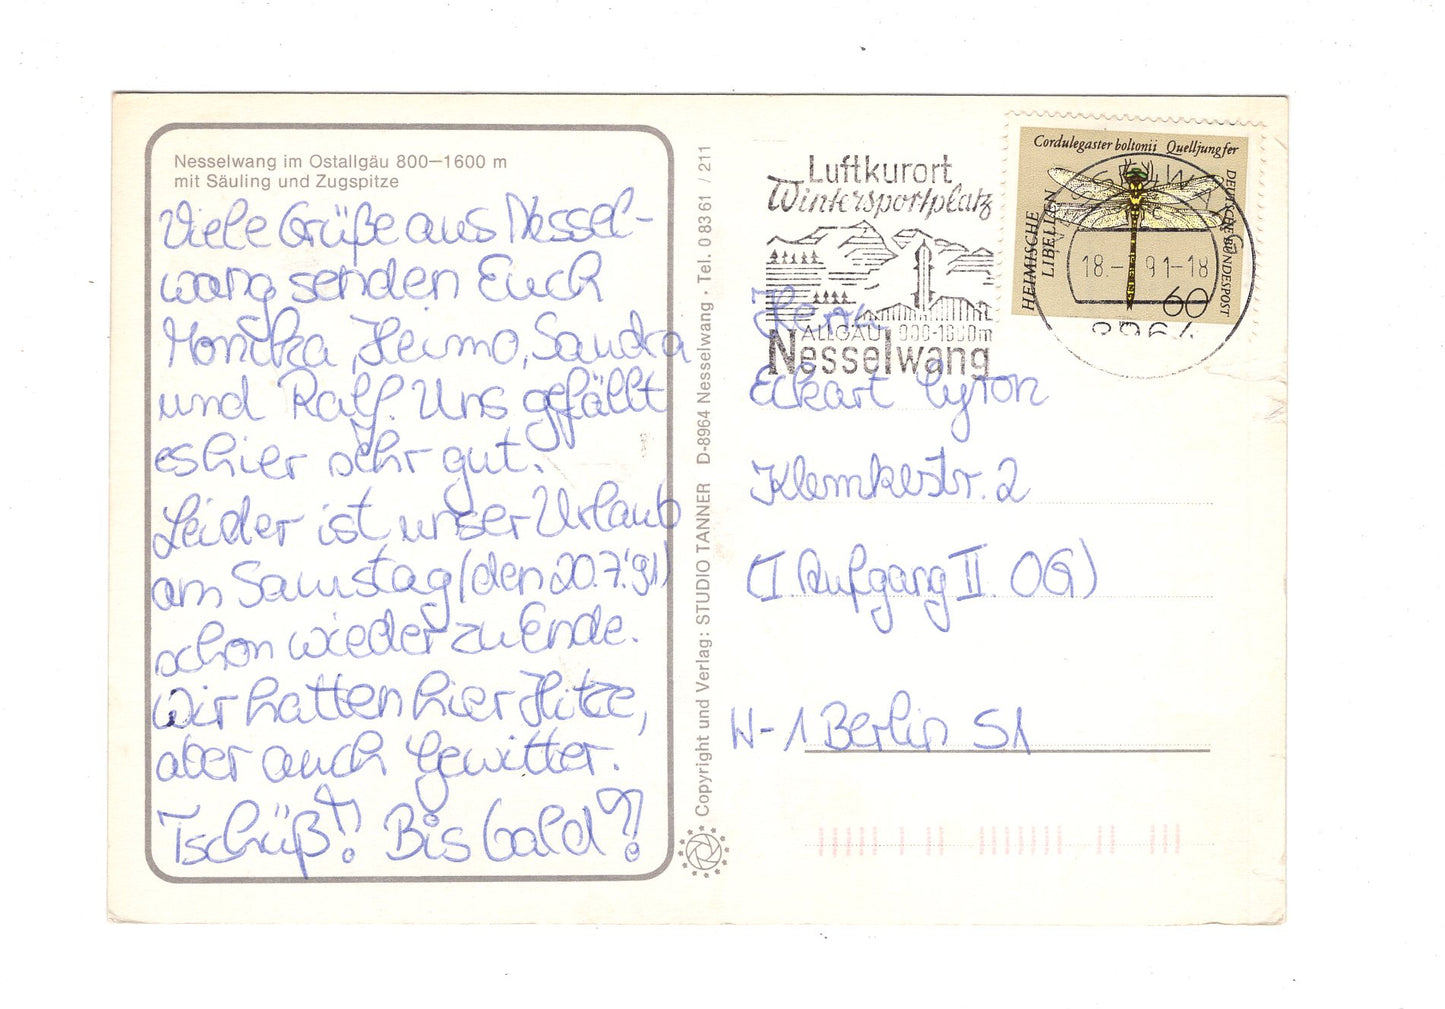 Nesselwang im Ostallgäu 800—1600 m
mit Säuling und Zugspitze
Viele Grüße aus Nessel-
wang senden Euch
Monika, Heimo, Sandra
und Ralf. Uns gefällt
es hier sehr gut.
Leider ist unser Urlaub
am Samstag (den 20.7.'91)
schon wieder zu Ende.
Wir hatten hier Hitze,
aber auch Gewitter.
Tschüß! Bis bald?!
Copyright und Verlag: STUDIO TANNER D-8964 Nesselwang · Tel. 0 83 61 / 211
Luftkurort
Wintersportplatz
ALLGÄU 900-1600m
Nesselwang
Cordulegaster boltonii Quelljungfer
HEIMISCHE
LIBELLEN
DEUTSCHE BUNDESPOST
60
18.- 91-18
8964
Herrn
Eckart
Klemkestr. 2
(I. Aufgang II. OG)
W-1 Berlin 51